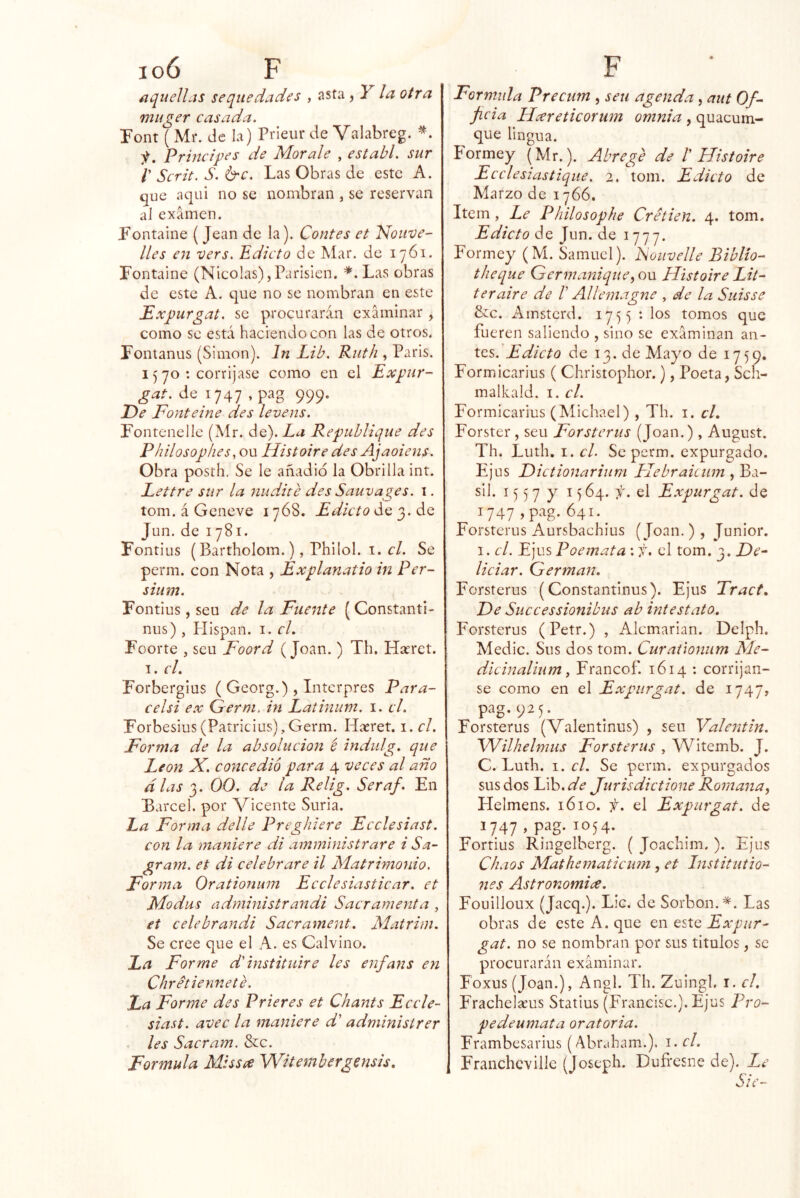 106 F
aquellas sequedades , asta , Y la otra
muger casada.
Font ( Mr. de la) Prieur de Valabreg. *.
ỳ. Principes de Morale , establ. sur
l' Scrit. S. &c. Las Obras de este A.
que aqui no se nombran , se reservan
al exâmen.
Fontaine ( Jean de la). Contes et Nouve-
lles en vers. Edicto de Mar. de 1761.
Fontaine (Nicolas), Parisien. *. Las obras
de este A. que no se nombran en este
Expurgat. se procurarán exâminar ,
como se está haciendo con las de otros.
Fontanus (Simon). In Lib. Ruth , Paris.
1570 : corrijase como en el Expur-
gat. de 1747 , pag 999.
De Fonteine des levens.
Fontenelle (Mr. de). La Republique des
Philosophes, ou Histoire des Ajaoiens.
Obra posth. Se le añadió la Obrilla int.
Lettre sur la nuditè des Sauvages. 1.
tom. á Geneve 1768. Edicto de 3. de
Jun. de 1781.
Fontius (Bartholom. ) , Philol. 1. cl. Se
perm. con Nota , Explanatio in Per-
sium.
Fontius , seu de la Fuente ( Constanti-
nus) , Hispan. 1. cl.
Foorte , seu Foord ( Joan. ) Th. Hæret.
1. cl.
Forbergius ( Georg.) , Interpres Para-
celsi ex Germ. in Latinum. 1. cl.
Forbesius (Patricius), Germ. Hæret. 1. cl.
Forma de la absolucion é indulg. que
Leon X. concedió para 4 veces al año
á las 3. OO. de la Relig. Seraf. En
Barcel. por Vicente Suria.
La Forma delle Preghiere Ecclesiast.
con la maniere di amministrare i Sa-
gram. et di celebrare il Matrimonio.
Forma Orationum Ecclesiasticar. et
Modus administrandi Sacramenta ,
et celebrandi Sacrament. Matrim.
Se cree que el A. es Calvino.
La Forme d'instituire les enfans en
Chrêtiennetè.
La Forme des Prieres et Chants Eccle-
siast. avec la maniere d' administrer
les Sacram. &c.
Formula Missæ Witembergensis.
F
Formula Precum , seu agenda , aut Of-
ficia Hæreticorum omnia , quacum-
que lingua.
Formey (Mr. ). Abregè de l' Histoire
Ecclesiastique. 2. tom. Edicto de
Marzo de 1766.
Item , Le Philosophe Crêtien. 4. tom.
Edicto de Jun. de 1777.
Formey ( M. Samuel). Nouvelle Biblio-
theque Germanique, ou Histoire Lit-
teraire de l' Allemagne , de la Suisse
&c. Amsterd. 1755 : los tomos que
fueren saliendo , sino se exâminan an-
tes. Edicto de 13. de Mayo de 1759.
Formicarius ( Christophor. ) , Poeta, Sch-
malkald. 1. cl.
Formicarius (Michael) , Th. 1. cl.
Forster , seu Forsterus (Joan.) , August.
Th. Luth. 1. cl. Se perm. expurgado.
Ejus Dictionarium Hebraicum , Ba-
sil. 1557 y 1564. ỳ. el Expurgat. de
1747 , pag. 641.
Forsterus Aursbachius (Joan. ) , Junior.
1. cl. Ejus Poemata : ỳ. el tom. 3. De-
liciar. German.
Forsterus (Constantinus). Ejus Tract.
De Successionibus ab intestato.
Forsterus (Petr.) , Alcmarian. Delph.
Medic. Sus dos tom. Curationum Me-
dicinalium, Francof. 1614 : corrijan-
se como en el Expurgat. de 1747,
pag. 925.
Forsterus (Valentinus) , seu Valentin.
Wilhelmus Forsterus , Witemb. J.
C. Luth. 1. cl. Se perm. expurgados
sus dos Lib. de Jurisdictione Romana,
Helmens. 1610. ỳ. el Expurgat. de
1747 , pag. 1054.
Fortius Ringelberg. ( Joachim. ). Ejus
Chaos Mathematicum , et Institutio-
nes Astronomiæ.
Fouilloux (Jacq.). Lic. de Sorbon. *. Las
obras de este A. que en este Expur-
gat. no se nombran por sus titulos , se
procurarán exâminar.
Foxus (Joan.), Angl. Th. Zuingl. 1. cl.
Frachelæus Statius (Francisc.). Ejus Pro-
pedeumata oratoria.
Frambesarius (Abraham.). 1. cl.
Francheville (Joseph. Dufresne de). Le
Sie-